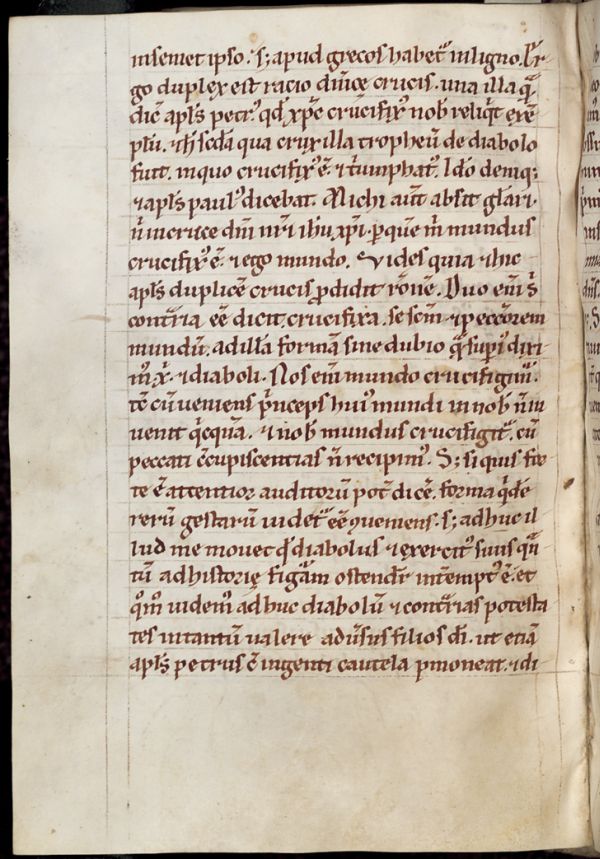 insemet ipso. s; apud grecos habet᷑ in ligno. Er
go duplex est racio diuine̜ crucis. una illa q̃
dic̄ apl̄s petr᷒ qd̄ xp̄c crucifix᷒ nob̄ reliq̇t exē
plū. ⁊ h̄ scd̄a qua crux illa tropheū de diabolo
fuit. in quo crucifix᷒ ē. ⁊ t̓umphat᷒. Ido deniq;
⁊ apl̄s paul᷒ dicebat. Michi aut̄ absit gl̄ari.
n̄ in cruce dn̄i nr̄i ih̄u xp̄i. ꝑ quem m̄ mundus
crucifix᷒ ē. ⁊ ego mundo. Vides quia ⁊ hic
apl̄s duplicē crucis ꝓdidit rōnē. Duo eni̅ s̄
contr̄ia eē dicit crucifixa. se scm̄ ⁊ peccōrem
mundū. ad illā formā sine dubio q̄ sup̄i dixi
m᷒ x̄. ⁊ diaboli. Nos eni̅ mundo crucifigim᷒.
tc̄ cū ueniens p̓nceps hui᷒ mundi in nob̄ n̄ in
uenit q̇cquā. ⁊ nob̄ mundus crucifigit᷑. cū
peccati ↄcupiscentias n̄ recipim᷒. S; si quis for
te ē attentior auditorū pot̄ dicē. forma q̇dē
rerū gestarū uidet᷑ eē ↄueniens. s; adhuc il
lud me mouet qd̄ diabolus ⁊ exercit᷒ suus q̄n
tū ad historię figurā ostendit᷑ intempt᷒ ē. et
qm̄ uidem᷒ adhuc diabolū ⁊ contr̄ias potesta
tes in tantū ualere aduersus filios dī. ut etiā
apl̄s petrus cū ingenti cautela p̄moneat. ⁊ di